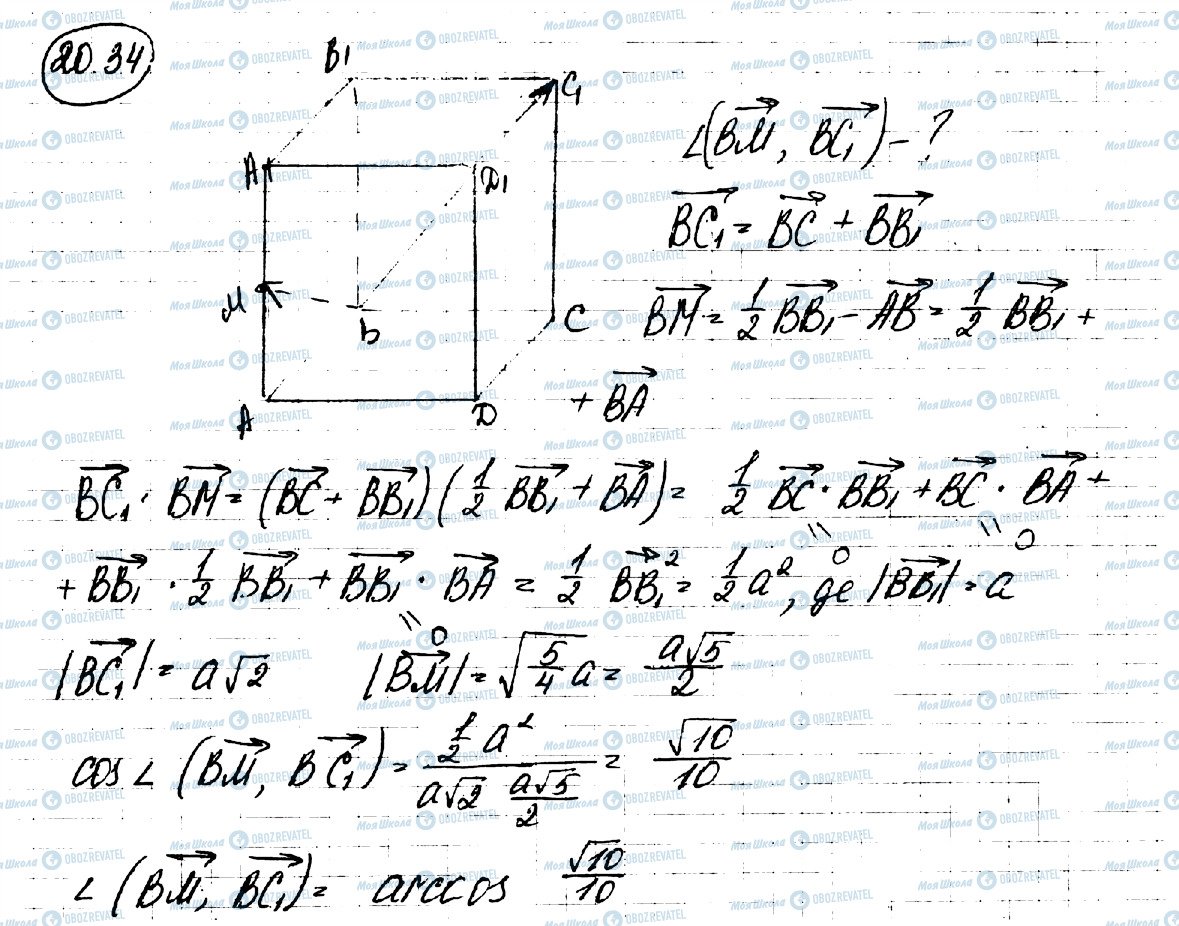 20.34
B₁
C₁
A
D₁
M
b
C
A
D
∠(BM⃗, BC₁⃗) - ?
BC₁⃗ = BC⃗ + BB₁⃗
BM⃗ = 1/2 BB₁⃗ - AB⃗ = 1/2 BB₁⃗ +
+ BA⃗
BC₁⃗ · BM⃗ = (BC⃗ + BB₁⃗)(1/2 BB₁⃗ + BA⃗) = 1/2 BC⃗ · BB₁⃗ + BC⃗ · BA⃗ +
= 0 = 0
+ BB₁⃗ · 1/2 BB₁⃗ + BB₁⃗ · BA⃗ = 1/2 BB₁⃗² = 1/2 a², де |BB₁⃗| = a
= 0
|BC₁⃗| = a√2 |BM⃗| = √(5/4) a = a√5/2
cos ∠ (BM⃗, BC₁⃗) = (1/2 a²)/(a√2 a√5/2) = √10/10
∠ (BM⃗, BC₁⃗) = arccos √10/10
Моя Школа OBOZREVATEL